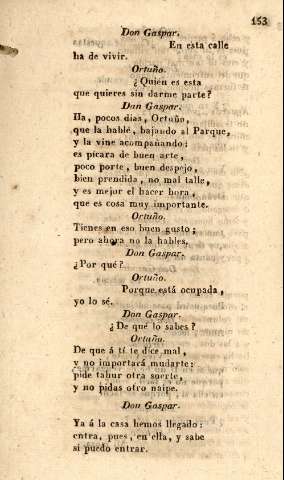 153
Don Gaspar.
En esta calle
ha de vivir.
Ortuño.
¿Quien es esta
que quieres sin darme parte?
Don Gaspar.
Ha, pocos dias, Ortuño,
que la hablé, bajando al Parque,
y la vine acompañando:
es picara de buen arte,
poco porte, buen despejo,
bien prendida, no mal talle,
y es mejor el hacer hora,
que es cosa muy importante.
Ortuño.
Tienes en eso buen gusto;
pero ahora no la hables.
Don Gaspar.
¿Por qué?
Ortuño.
Porque está ocupada,
yo lo sé.
Don Gaspar.
¿De qué lo sabes?
Ortuño.
De que á tí te dice mal,
y no importará mudarte:
pide tahur otra suerte,
y no pidas otro naipe.
Don Gaspar.
Ya á la casa hemos llegado:
entra, pues, en ella, y sabe
si puedo entrar.